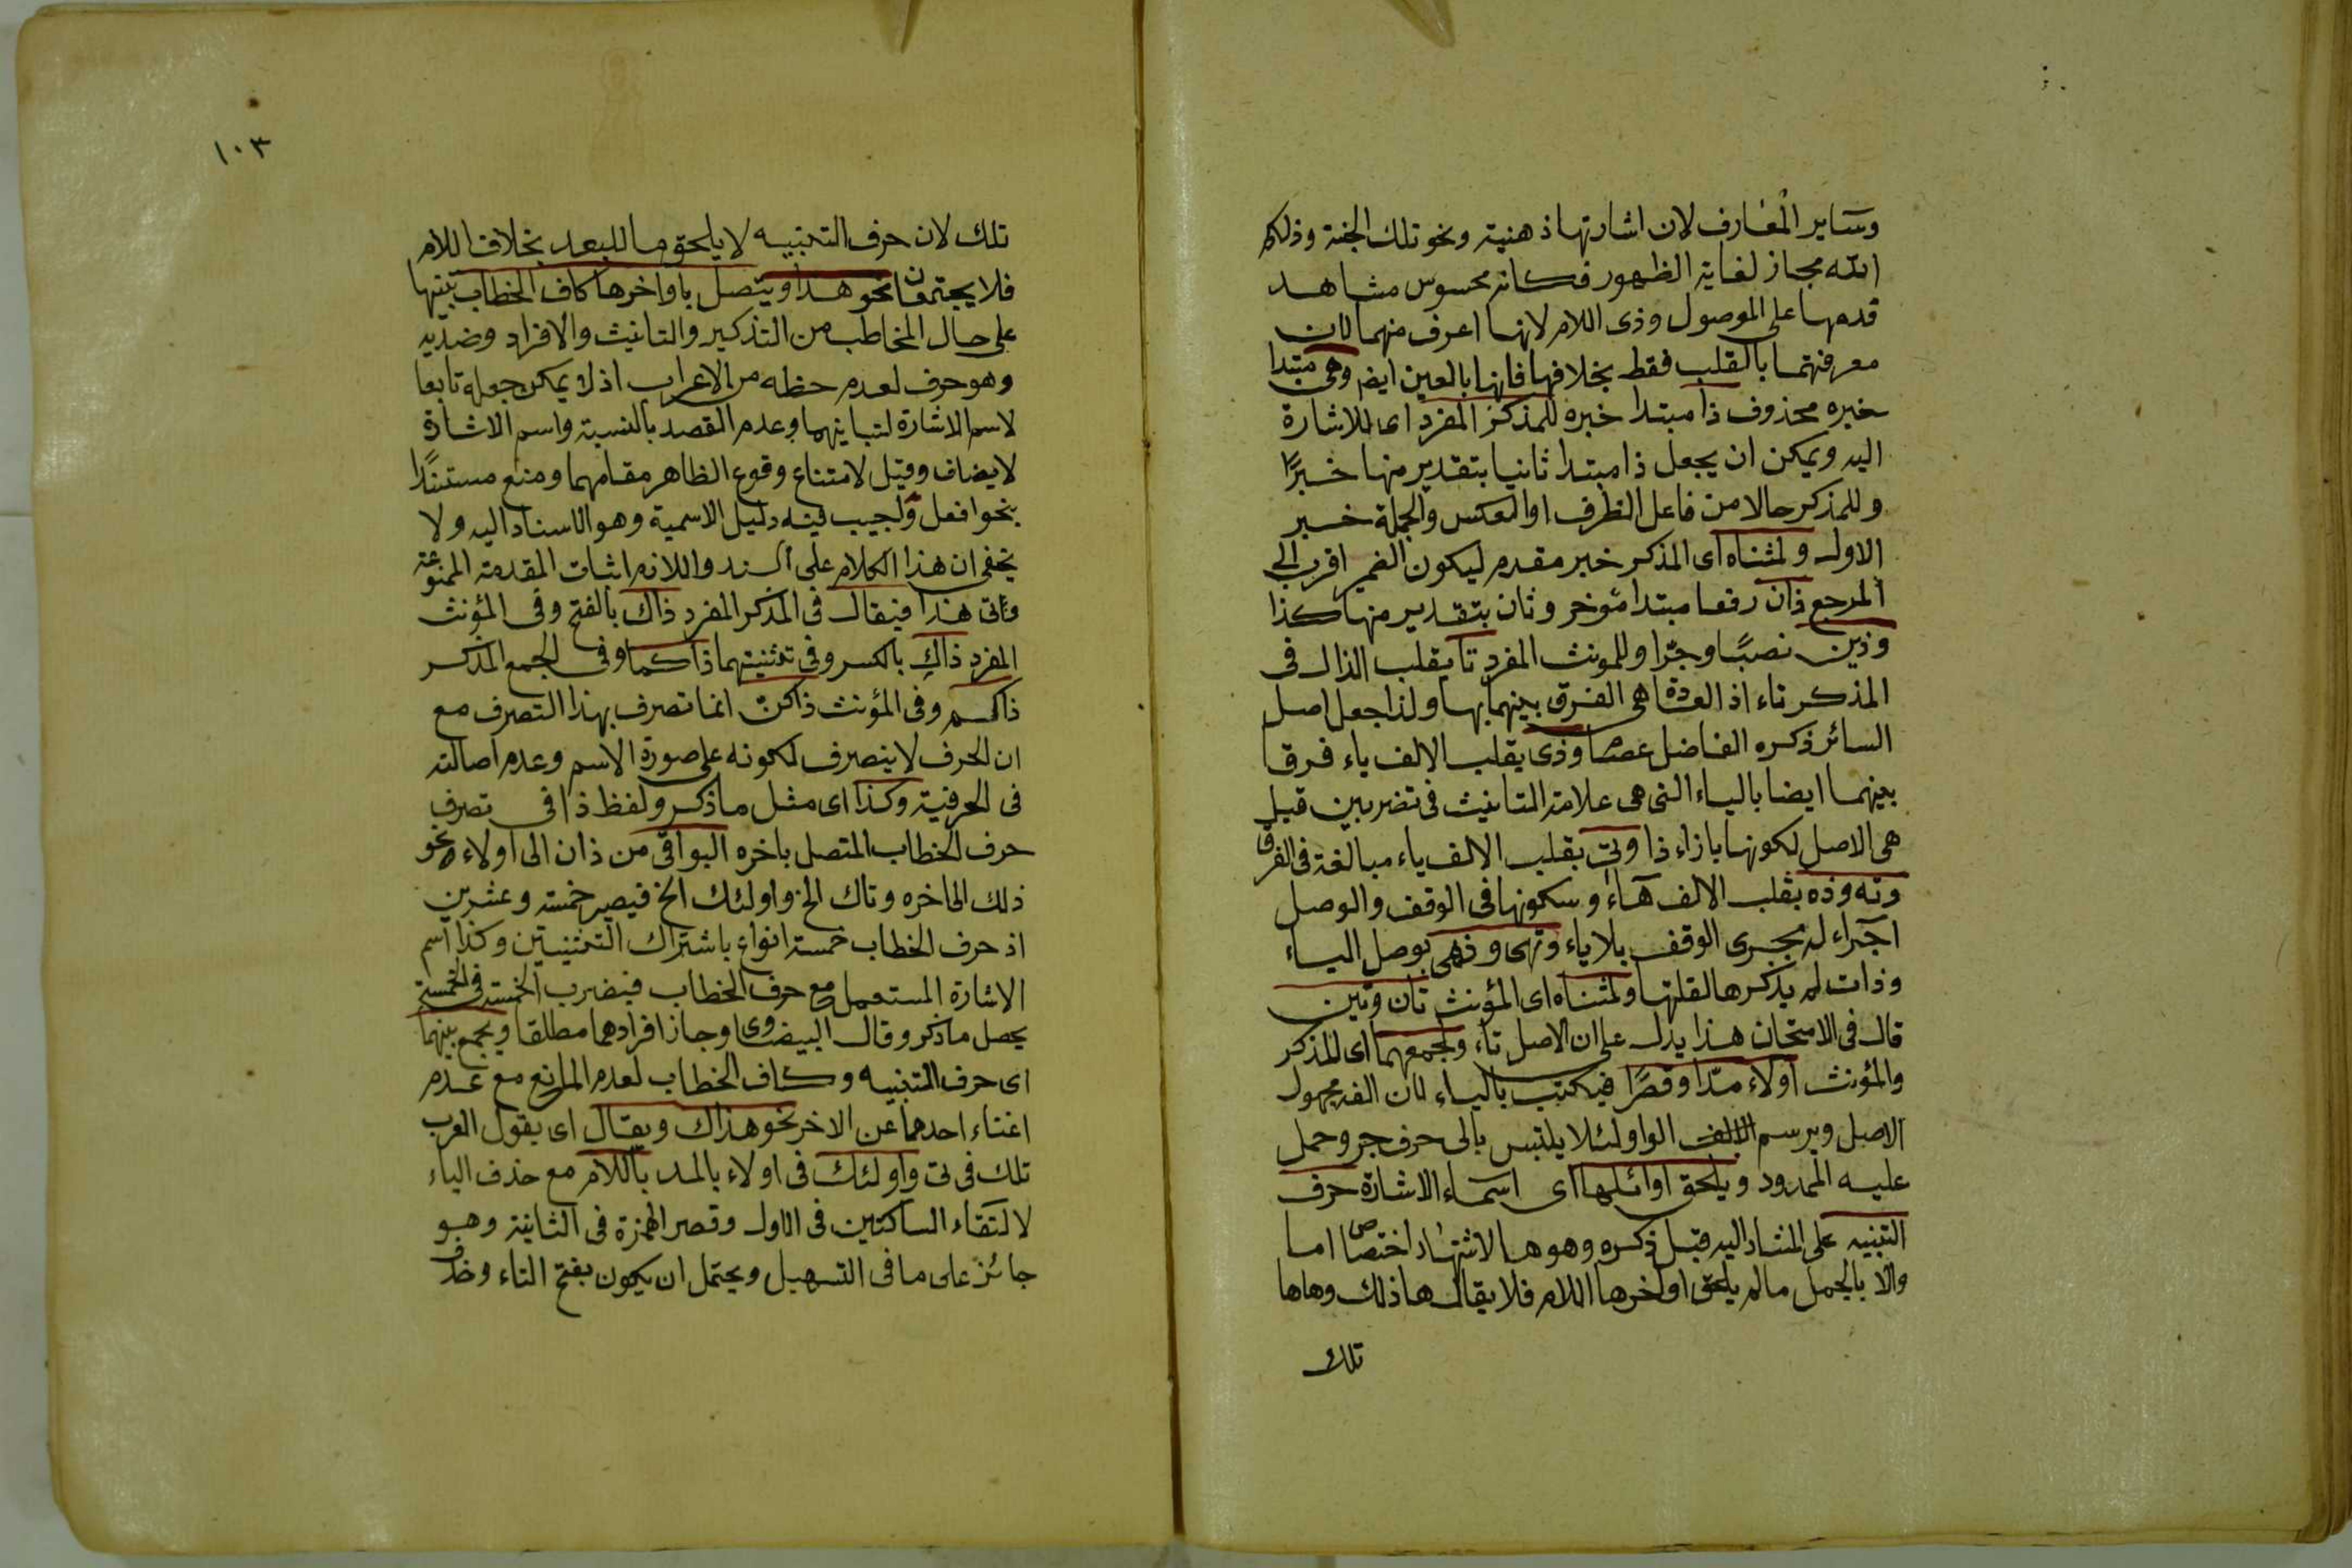 وساير المعارف لان اشارتها ذهنية ونحو تلك الجنة وذلكم
الله مجاز لغاية الظهور فكانه محسوس مشاهد
قدمها على الموصول وذى اللام لانها اعرف منهما لان
معرفتهما بالقلب فقط بخلافها فانها بالعين ايضا وهى مبتدا
خبره محذوف ذا مبتدا خبره للمذكر المفرد اى للاشارة
اليه ويمكن ان يجعل ذا مبتدا ثانيا بتقدير منها خبرًا
وللمذكر حالا من فاعل الظرف او العكس والجملة خبر
الاول ولمثناه اى المذكر خبر مقدم ليكون الضمير اقرب الى
المرجع ذان رفعا مبتدا مؤخر وثان بتقدير منها كذا
وذين نصبًا وجرّا وللمونث المفرد تا بقلب الذال فى
المذكر تاء اذ العدة هى الفرق بينهما بها ولذا جعل اصل
السائر ذكره الفاضل عصا وذى بقلب الالف ياء فرقا
بينهما ايضا بالياء التى هى علامة التانيث فى تضربين قيل
هى الاصل لكونها بازاء ذا وتى بقلب الالف ياء مبالغة فى الفرق
وته وذه بقلب الالف هاء وسكونها فى الوقف والوصل
اجراء له مجرى الوقف بلا ياء وتهى وذهى بوصل الياء
وذات لم يذكرها لقلتها ولمثناه اى المؤنث تان وتين
قال فى الامتحان هذا يدل على ان الاصل تاء ولجمعهما اى المذكر
والمؤنث اولاء مدّا وقصرًا فيكتب بالياء لان الفه مجهول
الاصل ويرسم الواو لئلا يلتبس بالى حرف جر وحمل
عليه الممدود ويلحق اوائلها اى اسماء الاشارة حرف
التنبيه على المشار اليه قبل ذكره وهو ها لاشتهار اختصاص اما
والا بالجمل مالم يلحق اواخرها اللام فلا يقال هاذلك وهاها
تلك
١٠٣
تلك لان حرف التنبيه لا يلحق ما للبعد بخلاف اللام
فلا يجتمعان نحو هذا ويتصل باواخرها كاف الخطاب تنبيها
على حال المخاطب من التذكير والتانيث والافراد وضديه
وهو حرف لعدم حظه من الاعراب اذ لا يمكن جعله تابعا
لاسم الاشارة لتباينهما وعدم القصد بالنسبة واسم الاشارة
لا يضاف وقيل لامتناع وقوع الظاهر مقامهما ومنع مستندًا
بنحو افعل واجيب فيه دليل الاسمية وهو الاسناد اليه ولا
يخفى ان هذا الكلام على السند واللازم اثبات المقدمة الممنوعة
هذا فيقال فى المذكر المفرد ذاك بالفتح وفى المؤنث
المفرد ذاكِ بالكسر وفى تثنيتهما ذاكما وفى الجمع المذكر
ذاكم وفى المؤنث ذاكن انما تصرف بهذا التصرف مع
ان الحرف لا يتصرف لكونه على صورة الاسم وعدم اصالته
فى الحرفية وكذا اى مثل ما ذكر ولفظ ذا فى تصرف
حرف الخطاب المتصل باخره البواقى من ذان الى اولاء نحو
ذلك الى اخره وتاك الخ واولئك الخ فيصير خمسة وعشرين
اذ حرف الخطاب خمسة انواع باشتراك التثنيتين وكذا اسم
الاشارة المستعمل مع حرف الخطاب فيضرب الخمسة فى الخمسة
يحصل ما ذكر وقال البيضاوى وجاز افرادهما مطلقا ويجمع بينهما
اى حرف التنبيه وكاف الخطاب لعدم المانع مع عدم
اغناء احدهما عن الاخر نحو هذاك ويقال اى يقول العرب
تلك فى تى واولئك فى اولاء بالمد باللام مع حذف الياء
لالتقاء الساكنين فى الاول وقصر الهمزة فى الثانية وهو
جائز على ما فى التسهيل ويحتمل ان يكون بفتح التاء وحذف